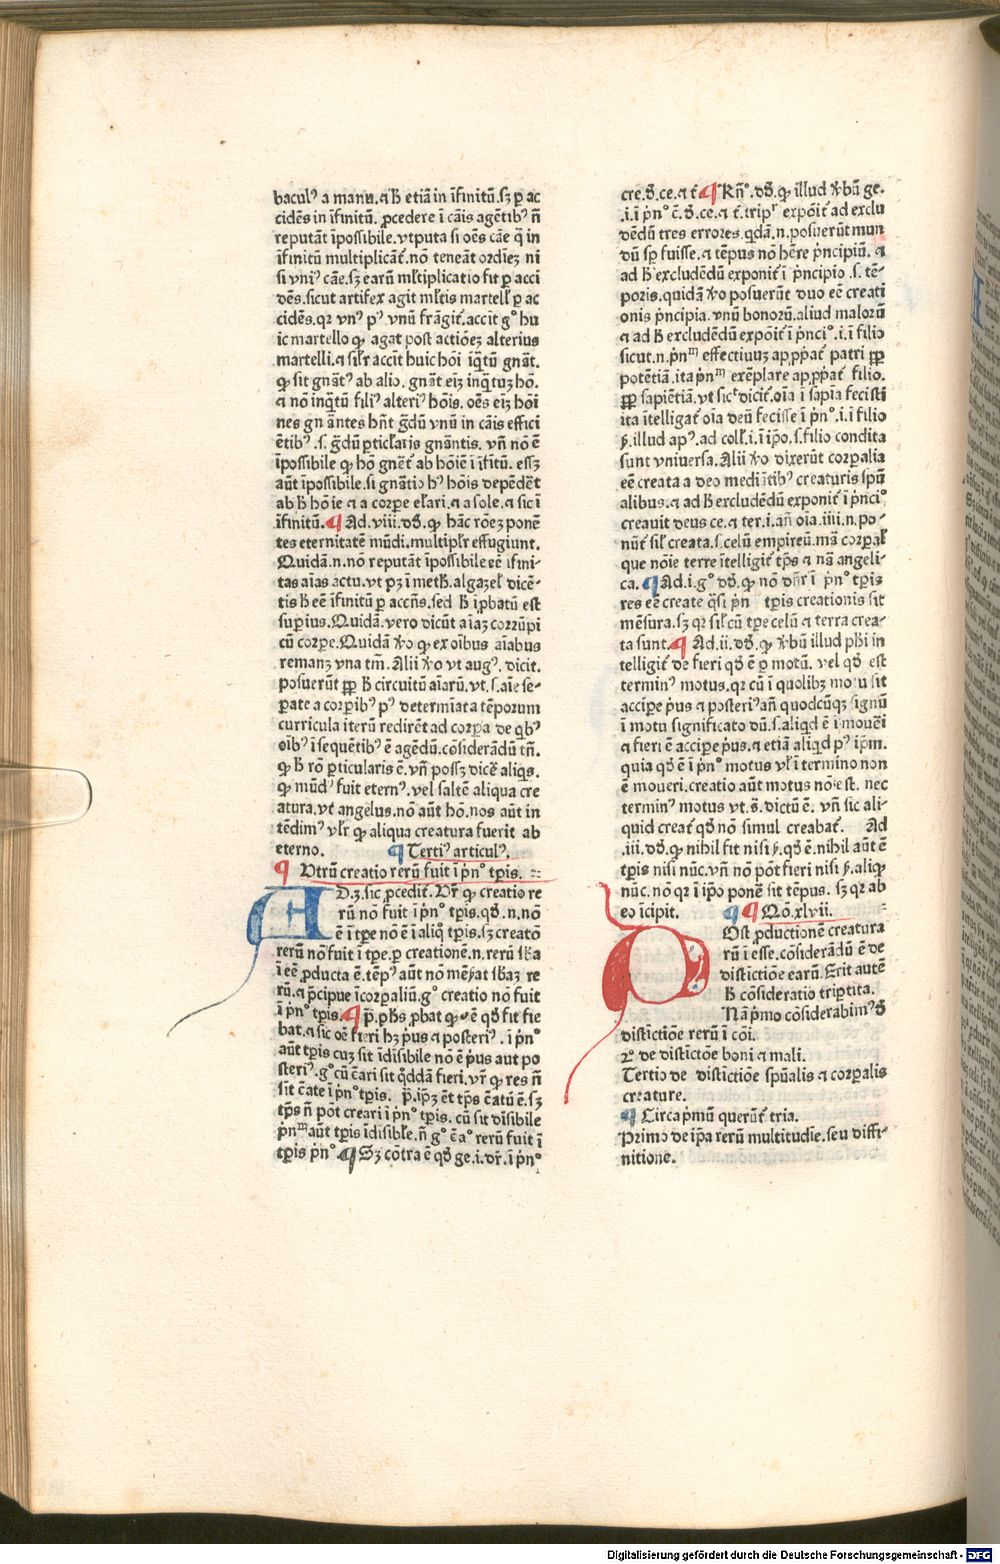 bacul⁹ a manu.⁊ ħ etiā in īfinitū.sʒ ꝑ ac
cidēs in īfinitū. ꝓcedere ī cāis agētib⁹ ñ
reputāt īpossibile.vtputa si oēs cāe q̄ in
īfinitū multiplicāt̄.nō teneāt ordīeʒ ni
si vni⁹ cāe.sʒ earū ml̄tiplicatio fit ꝑ acci
dēs.sicut artifex agit ml̄tis martell̄ ꝑ ac
cidēs.qꝛ vn⁹ p⁹ vnū frāgit̄.accīt gͦ hu
ic martello ꝙ agat post actiōeʒ alterius
martelli.⁊ sil̄r accīt huic hōi īq̄tū gnāt.
ꝙ sit gnāt⁹ ab alio. gnāt eīʒ inq̄tuʒ hō.
⁊ nō inq̄tū fili⁹ alteri⁹ hōis. oēs eīʒ hōi
nes gnantes hn̄t ḡdū vnū in cāis effici
ētib⁹ .s. ḡdū ꝑticl̄aris gnāntis. vñ nō ē
īpossibile ꝙ hō gnēt̄ ab hōie ī īfitū. essʒ
aūt īpossibile.si gnātio h⁹ hōis depēdēt
ab ħ hōie ⁊ a corꝑe elāri.⁊ a sole.⁊ sic ī
īfinitū. ¶ Ad.viii.dꝺ. ꝙ hāc rōeʒ ponē
tes eternitatē mūdi.multipl̄r effugiunt.
Quidā.n.nō reputāt īpossibile eē īfini
tas aīas actu.vt pʒ ī meth̄.algaʒel̄ dicē-
tis ħ eē īfinitū ꝑ accn̄s.sed ħ īꝓbatū est
suꝑius.Quidā.vero dicūt aīaʒ corrūpi
cū corꝑe.Quidā v̓o ꝙ ex oībus aīabus
remanʒ vna tm̄. Alii v̓o vt aug⁹. dicit.
posuerūt ꝓꝑ ħ circuitū aīarū.vt.s.aīe se-
ꝑate a corꝑib⁹ p⁹ determīata tēporum
curricula iterū redirēt ad corꝑa de qb⁹
oīb⁹ ī seq̄uētib⁹ ē agēdū.cōsiderādū tn̄.
ꝙ ħ rō ꝑticularis ē.vñ possʒ dicē̓ aliqs.
ꝙ mūd⁹ fuit etern⁹.vel saltē aliqua cre
atura.vt angelus.nō aūt hō.nos aūt in
tēdim⁹ vl̄r ꝙ aliqua creatura fuerit ab
eterno. ¶ Terti⁹ articul⁹.
¶ Utrū creatio rerū fuit ī p̓nͦ tꝑis.
AD.3.sic ꝓcedit̄. Vr̄ ꝙ creatio re
rū nō fuit ī p̓nͦ tꝑis.qꝺ.n.nō
ē ī tꝑe nō ē ī aliq̊ tꝑis.sʒ creatō
rerū nō fuit ī tꝑe.ꝑ creationē.n.rerū sb̄a
ī eē ꝓducta ē.tēp⁹ aūt nō mēs̓at sb̄aʒ re
rū.⁊ p̄cipue īcorꝑaliū.gͦ creatio nō fuit
ī p̓nͦ tꝑis. ¶ p̄.ph̄s ꝓbat ꝙ oē qꝺ fit fie
bat.⁊ sic oē fieri hʒ p̓us ⁊ posteri⁹ . ī p̓nͦ
aūt tꝑis cuʒ sit īdīsibile nō ē p̓us aut po
steri⁹.gͦ cū c̄ari sit q̄ddā fieri.vr̄ ꝙ res ñ
sit c̄ate ī p̓nͦ tꝑis. p̄.ip̄ʒ et tp̄s c̄atū ē.sʒ
tp̄s ñ pōt creari ī p̓nͦ tꝑis. cū sit dīsibile
p̓nᵐ aūt tꝑis īdīsibil̄e.ñ gͦ c̄aͦ rerū fuit ī
tꝑis p̓nͦ ¶ Sʒ cōtra ē qꝺ ge.i.dr̄.ī p̓nͦ
cre.ꝺ.ce.⁊ t̄ ¶ Rn̄ͦ.dꝺ.ꝙ illud v̓bū ge.
.i.ī p̓nͦ c̄.ꝺ.ce.⁊ t̄.tripͬ expōit̄ ad exclu
dēdū tres errores.qdā.n.posuerūt mun
dū sꝑ fuisse.⁊ tēpus nō hēre p̓ncipiū. ⁊
ad ħ excludēdū exponit̄ ī p̓ncipio .s. tē-
poris.quidā v̓o posuerūt duo eē creati
onis p̓ncipia.vnū bonorū.aliud malorū
⁊ ad ħ excludēdū expōit̄ ī p̓nciͦ.i.ī filio
sicut.n.p̓nᵐ effectiuuʒ apꝓpat̄ patri ꝓꝑ
potētiā.ita p̓nᵐ exēplare apꝓpat̄ filio.
ꝓꝑ sapiētiā.vt sicͭ dicit̄.oīa ī sapīa fecisti
ita ītelligat̄ oīa deū fecisse ī p̓nͦ.i.ī filio
ẜ.illud ap⁹.ad coll̄.i.ī ip̄o.s.filio condita
sunt vniuersa.Alii v̓o dixerūt corꝑalia
eē creata a deo mediātib⁹ creaturis spū
alibus.⁊ ad ħ excludēdū exponit̄ ī p̓nciͦ
creauit deus ce.⁊ ter.i.añ oīa.iiii.n.po-
nūt̄ sil̄ creata.s.celū empireū.mā corꝑal̄
que nōie terre ītelligit̄ tp̄s ⁊ nā angeli-
ca. ¶ Ad.i.gͦ dꝺ. ꝙ nō dn̄r ī p̓nͦ tꝑis
res eē create q̄si p̓n tꝑis creationis sit
mēsura.sʒ qꝛ sil̄ cū tꝑe celū ⁊ terra crea-
ta sunt. ¶ Ad.ii.dꝺ.ꝙ v̓bū illud ph̄i in
telligit̄ de fieri qꝺ ē ꝑ motū. vel qꝺ est
termin⁹ motus.qꝛ cū ī quolibʒ motu sit
accipe p̓us ⁊ posteri⁹ añ quodcūqʒ signū
ī motu significato dū.s.aliqd ē ī mouēi
⁊ fieri ē accipe p̓us.⁊ etiā aliqd p⁹ ip̄m.
quia qꝺ ē ī p̓nͦ motus vl̄ ī termino non
ē moueri.creatio aūt motus nō est. nec
termin⁹ motus vt.s̄.dictū ē. vñ sic ali-
quid creat̄ qꝺ nō simul creabat̄. Ad
.iii.dꝺ.ꝙ nihil fit nisi ẜ.qꝺ ē.nihil aūt ē
tꝑis nisi nūc.vñ nō pōt fieri nisi ẜ.aliqꝫ
nūc.nō qꝛ ī ip̄o ponē̓ sit tēpus. sʒ qꝛ ab
eo īcipit. ¶ ¶ Mō.xlvii.
POst ꝓductionē creatura
rū ī esse.cōsiderādū ē de
distictiōe earū.Erit autē
ħ cōsideratio triꝑtita.
Nā p̓mo cōsiderabim⁹ ꝺ
distictiōe rerū ī cōi.
2ͦ de distictōe boni ⁊ mali.
Tertio de distictiōe spūalis ⁊ corꝑalis
creature.
¶ Circa p̓mū querūt̄ tria.
Primo de ip̄a rerū multitudīe.seu diffi-
nitione.
Digitalisierung gefördert durch die Deutsche Forschungsgemeinschaft - DFG